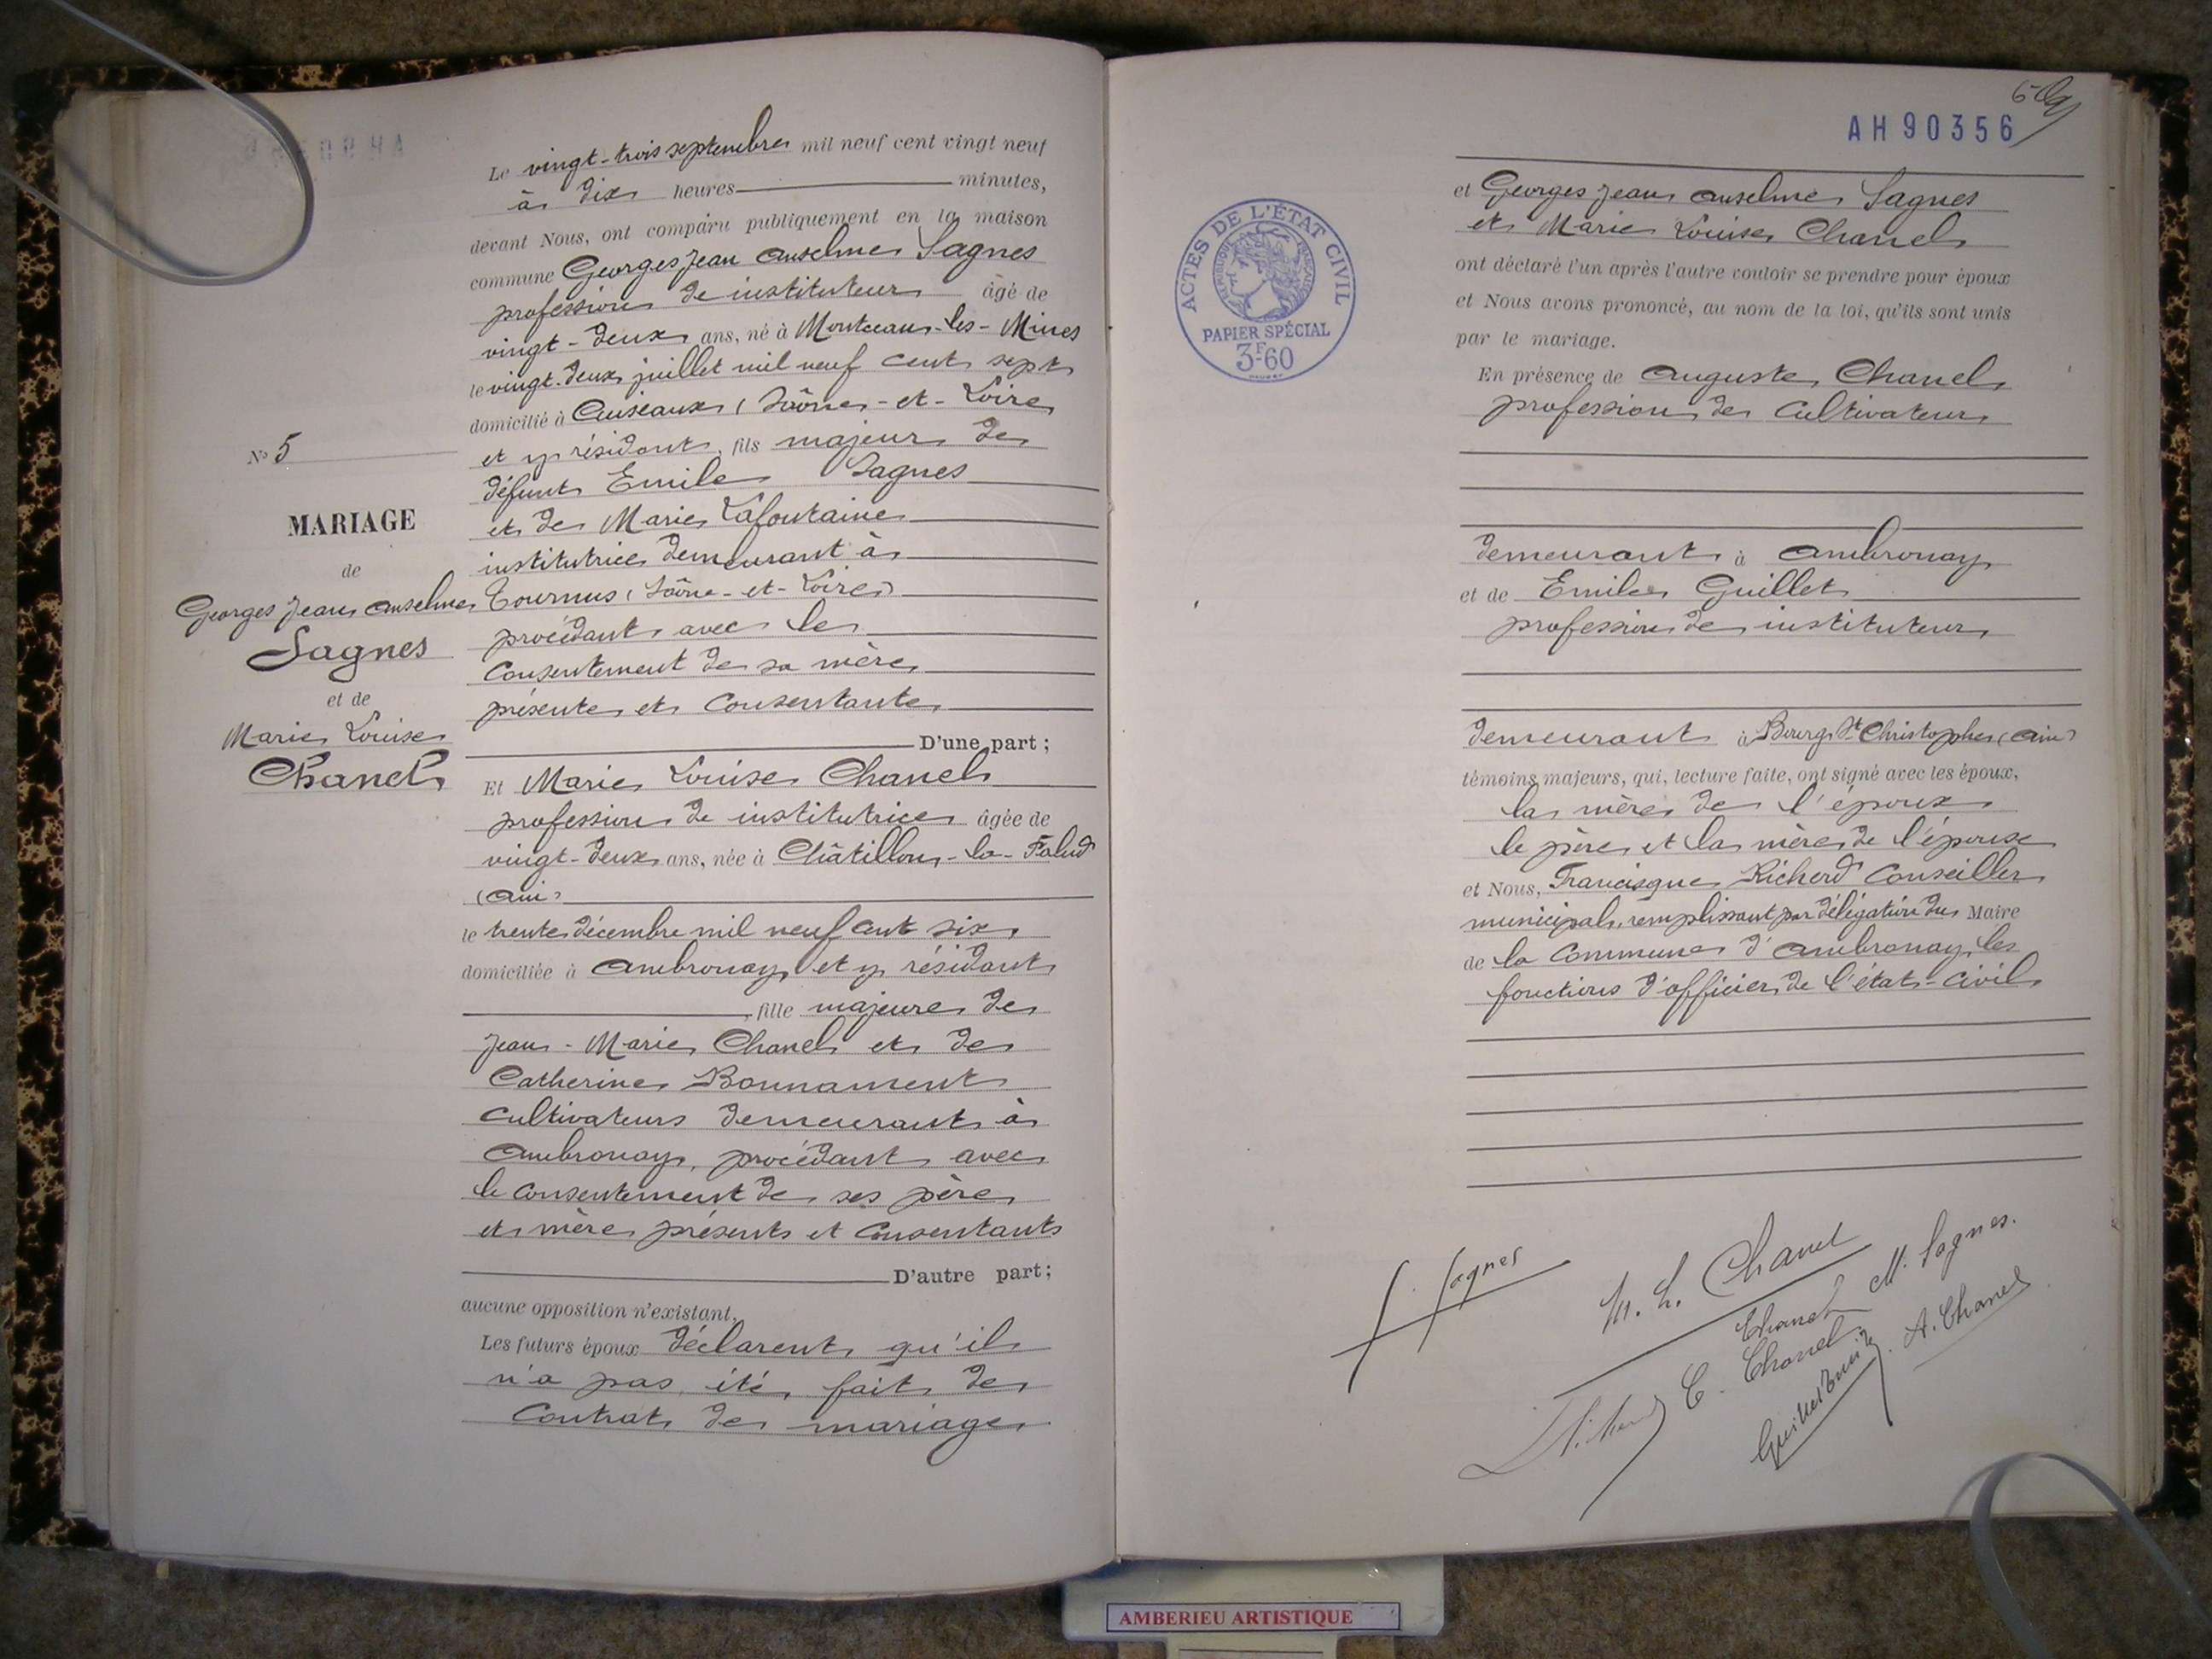 Le vingt-trois septembre mil neuf cent vingt neuf
à dix heures minutes,
devant Nous, ont comparu publiquement en la maison
commune Georges Jean Anselme Sagnes
profession de instituteur âgé de
vingt-deux ans, né à Montceau-les-Mines
le vingt-deux juillet mil neuf cent sept
domicilié à Cuiseaux (Saône-et-Loire
et y résidant, fils majeur de
défunt Emile Sagnes
et de Marie Lafontaine
institutrice demeurant à
Tournus (Saône-et-Loire)
procédant avec le
consentement de sa mère
présente et consentante
D'une part;
N° 5
MARIAGE
de
Georges Jean Anselme
Sagnes
et de
Marie Louise
Chanel
Et Marie Louise Chanel
profession de institutrice âgée de
vingt-deux ans, née à Châtillon-la-Palud
(Ain)
le trente décembre mil neuf cent six
domiciliée à Ambronay et y résidant
, fille majeure de
Jean-Marie Chanel et de
Catherine Bonnament
cultivateurs demeurant à
Ambronay, procédant avec
le consentement de ses père
et mère présents et consentants
D'autre part;
aucune opposition n'existant.
Les futurs époux déclarent qu'il
n'a pas été fait de
contrat de mariage
AH 90356
ACTES DE L'ÉTAT CIVIL
RÉPUBLIQUE FRANÇAISE
PAPIER SPÉCIAL
3F60
et Georges Jean Anselme Sagnes
et Marie Louise Chanel
ont déclaré l'un après l'autre vouloir se prendre pour époux
et Nous avons prononcé, au nom de la loi, qu'ils sont unis
par le mariage.
En présence de Auguste Chanel
profession de cultivateur
demeurant à Ambronay
et de Emile Guillet
profession de instituteur
demeurant à Bourg St Christophe (Ain)
témoins majeurs, qui, lecture faite, ont signé avec les époux,
la mère de l'époux
le père et la mère de l'épouse
et Nous, Francisque Richerd Conseiller
municipal, remplissant par délégation du Maire
de la Commune d'Ambronay les
fonctions d'officier de l'état-civil
Sagnes
M. L. Chanel
M. Sagnes.
Chanel
C. Chanel
A. Chanel
AMBERIEU ARTISTIQUE